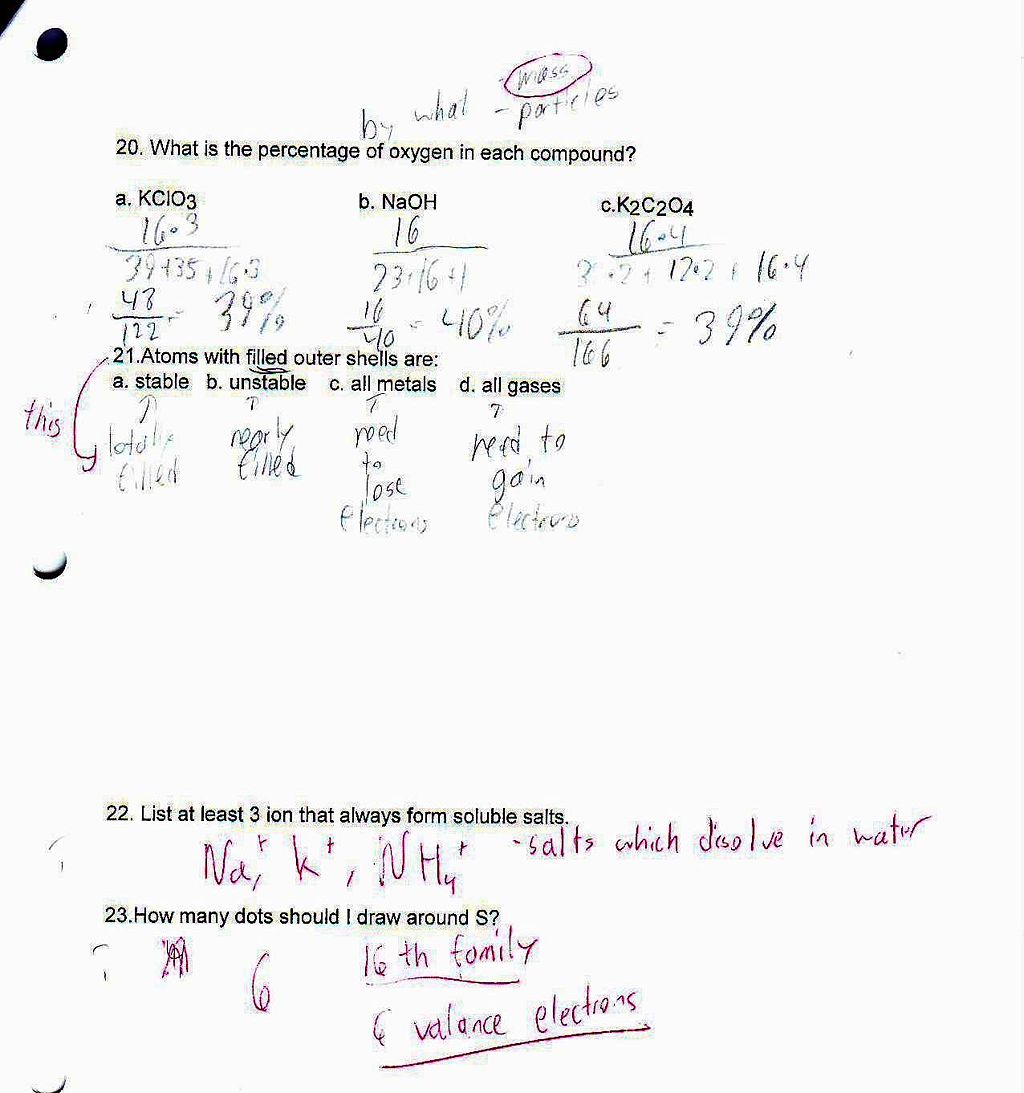 mass
by what - particles
20. What is the percentage of oxygen in each compound?
a. KClO3 b. NaOH c.K2C2O4
16•3 16 16•4
39+35+16•3 23+16+1 3 •2+ 12•2 + 16•4
48/122 = 39% 16/40 = 40% 64/166 = 39%
21.Atoms with filled outer shells are:
a. stable b. unstable c. all metals d. all gases
this
totally nearly need need to
filled filled to gain
lose electrons
electrons
22. List at least 3 ion that always form soluble salts.
Na+, K+, NH4+ -salts which disolve in water
23.How many dots should I draw around S?
6 16 th family
6 valance electrons